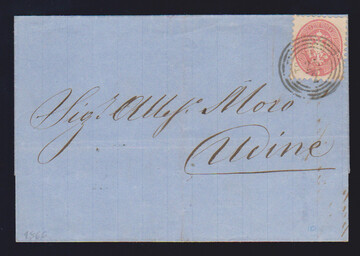 Sigr. Aless. Moro
Udine